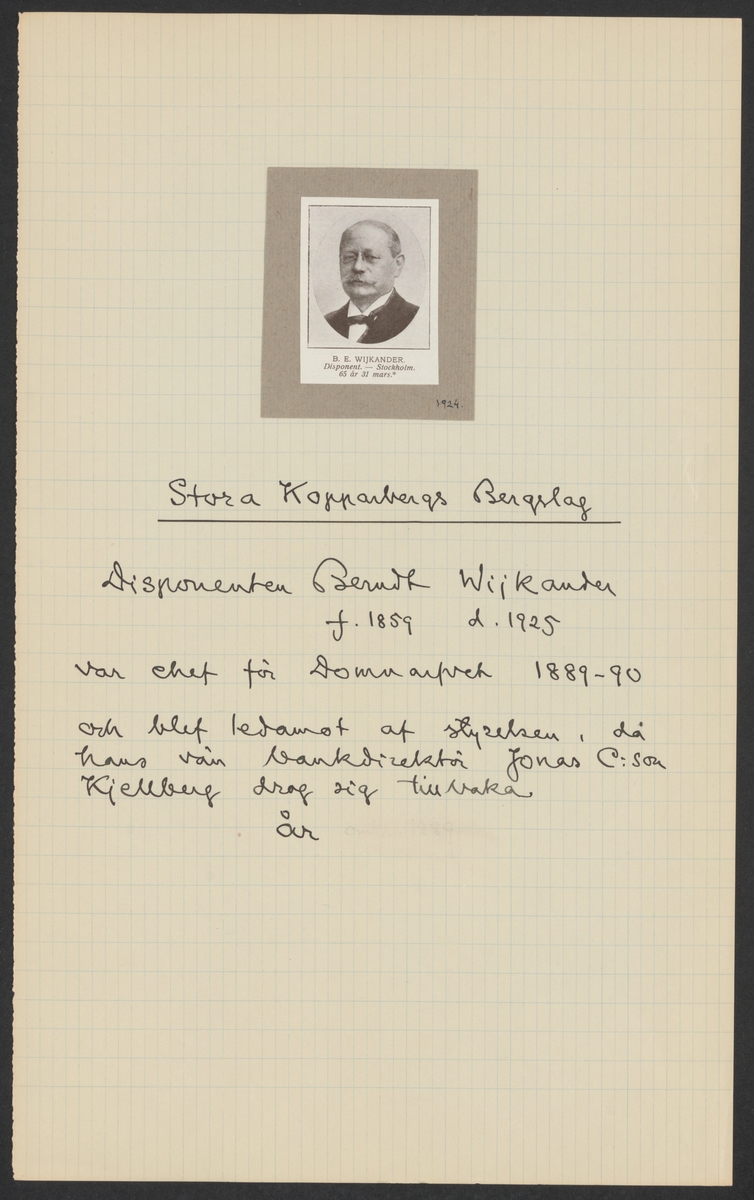 B. E. WIJKANDER.
Disponent. — Stockholm.
65 år 31 mars.*
1924.
Stora Kopparbergs Bergslag
Disponenten Berndt Wijkander
f. 1859 d. 1925
var chef för Domnarfvet 1889-90
och blef ledamot af styrelsen, då
hans vän bankdirektör Jonas C:son
Kjellberg drog sig tillbaka
år